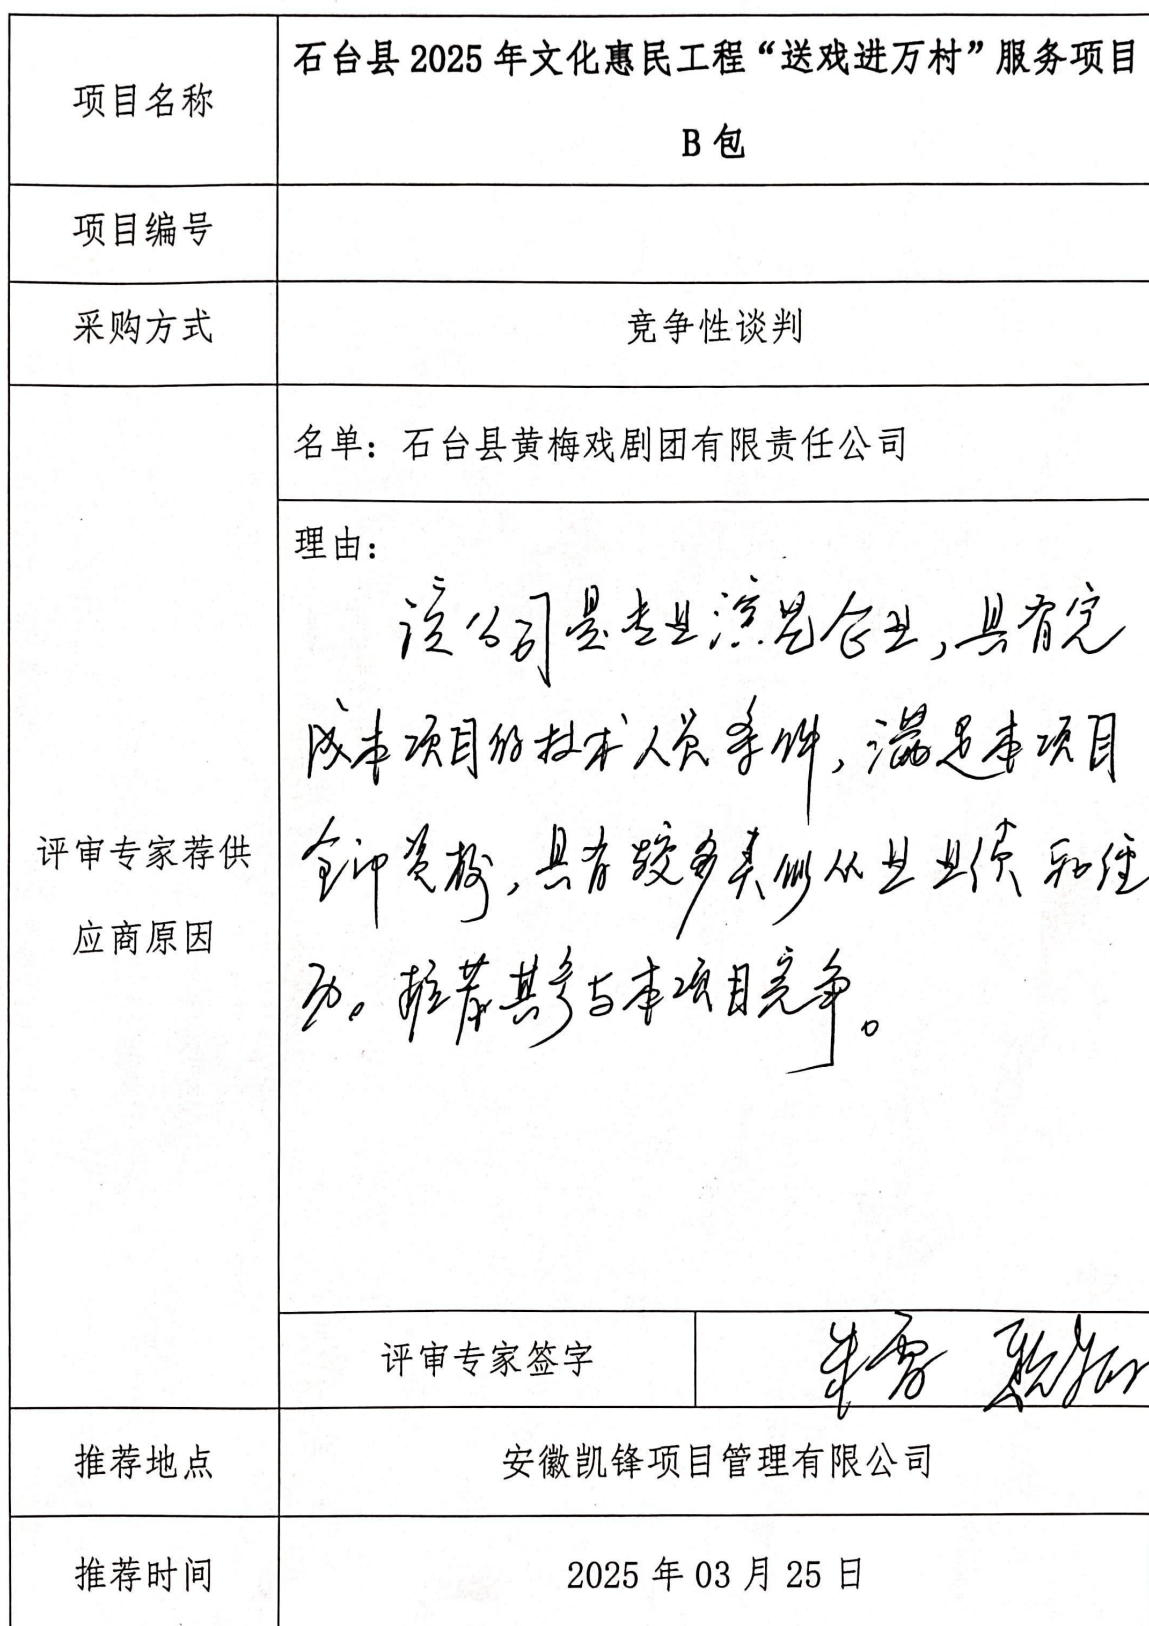 项目名称
石台县 2025 年文化惠民工程“送戏进万村”服务项目
B 包
项目编号
采购方式
竞争性谈判
评审专家荐供
应商原因
名单：石台县黄梅戏剧团有限责任公司
理由：
该公司是专业演艺企业，具有完
成本项目的技术人员条件，满足本项目
资格，具有较多类似从业业绩和经
历。推荐其参与本项目竞争。
评审专家签字
推荐地点
安徽凯锋项目管理有限公司
推荐时间
2025 年 03 月 25 日